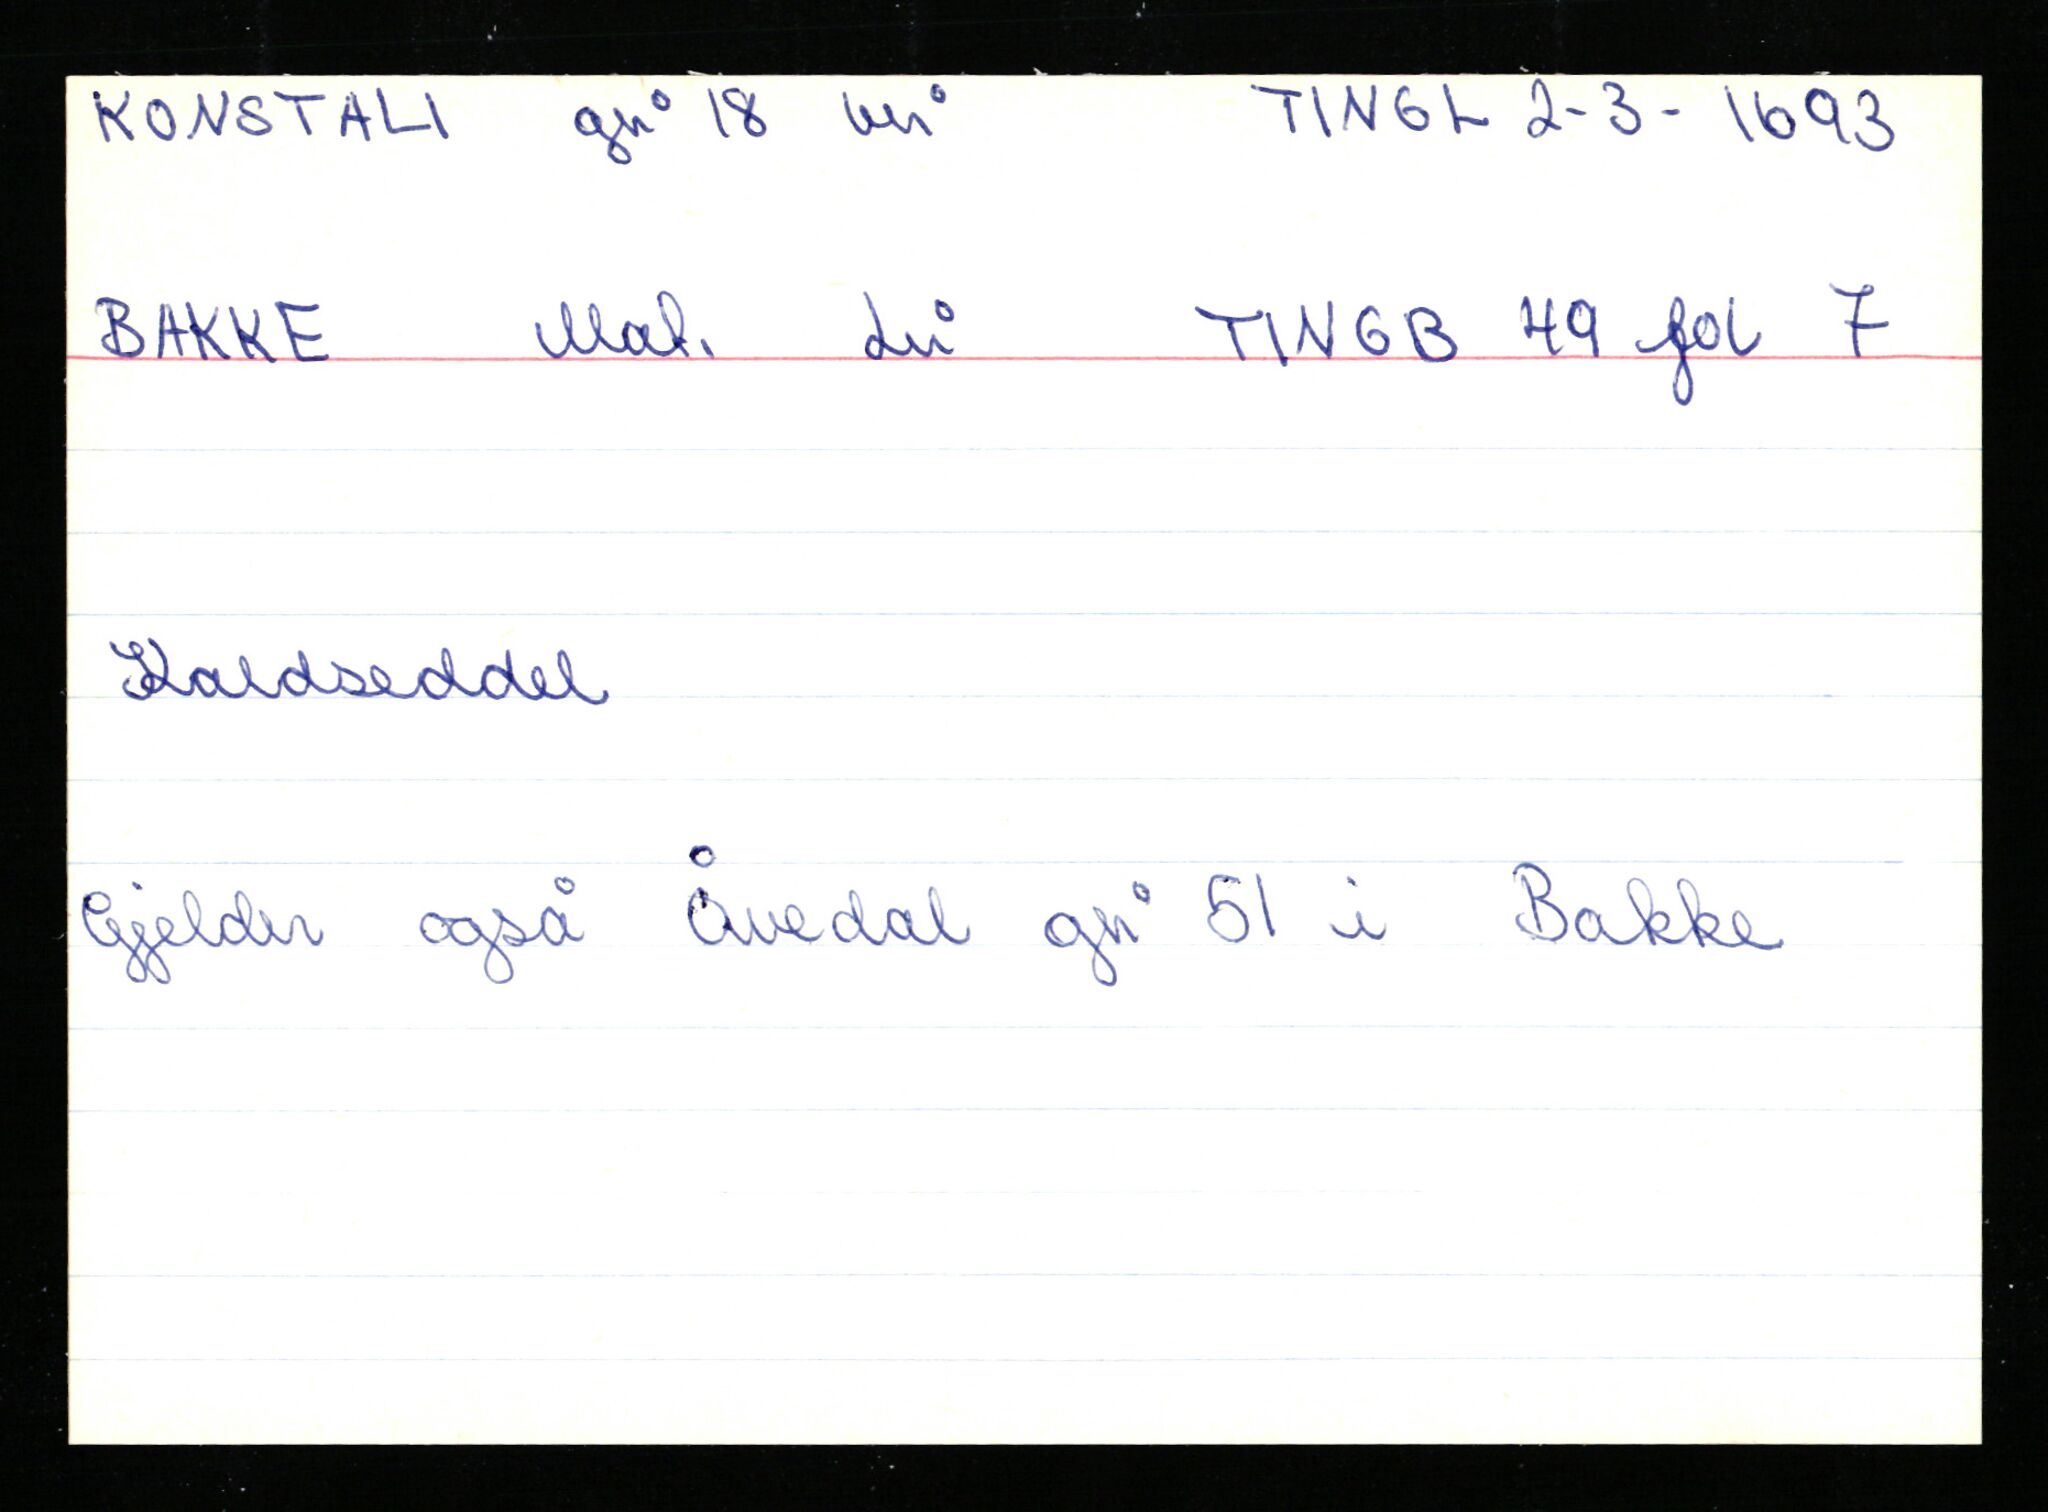 KONSTALI gn° 18 bn° TINGL 2-3-1693
BAKKE Mat. Ln° TINGB 49 fol 7
Kaldseddel
Gjelder også Åvedal gn° 51 i Bakke